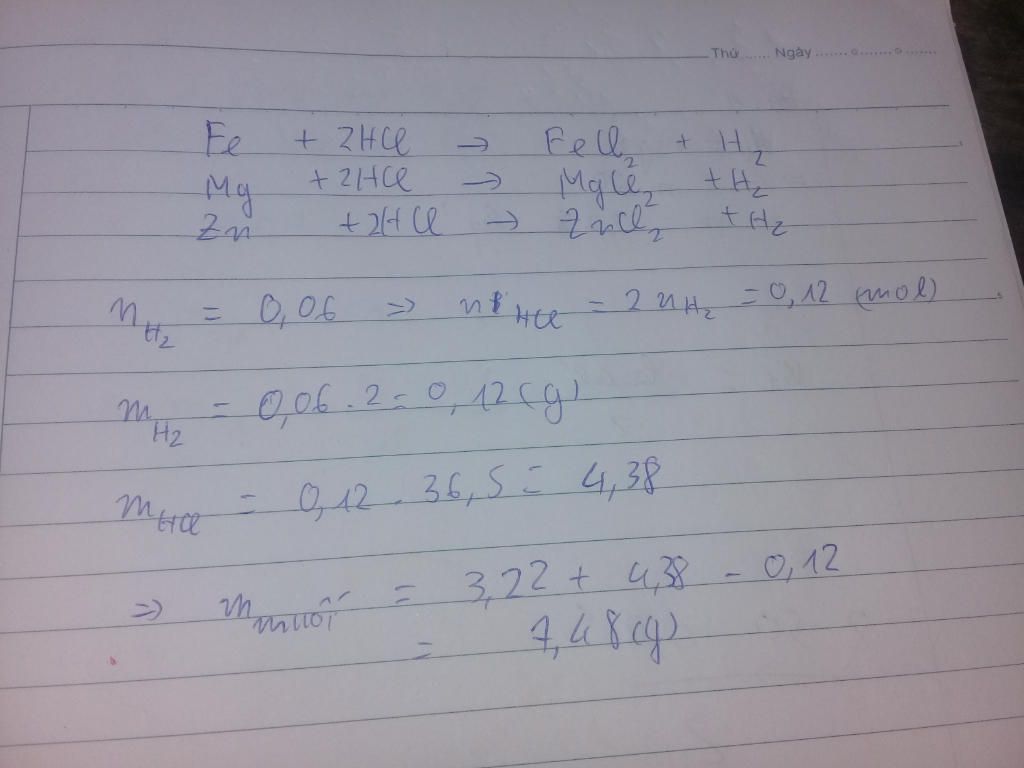 Thứ ...... Ngày .......o.......o.......
Fe + 2HCl → FeCl₂ + H₂
Mg + 2HCl → MgCl₂ + H₂
Zn + 2HCl → ZnCl₂ + H₂
n_H₂ = 0,06 => n_HCl = 2 n_H₂ = 0,12 (mol)
m_H₂ = 0,06 . 2 = 0,12 (g)
m_HCl = 0,12 . 36,5 = 4,38
=> m_muối = 3,22 + 4,38 - 0,12
= 7,48 (g)